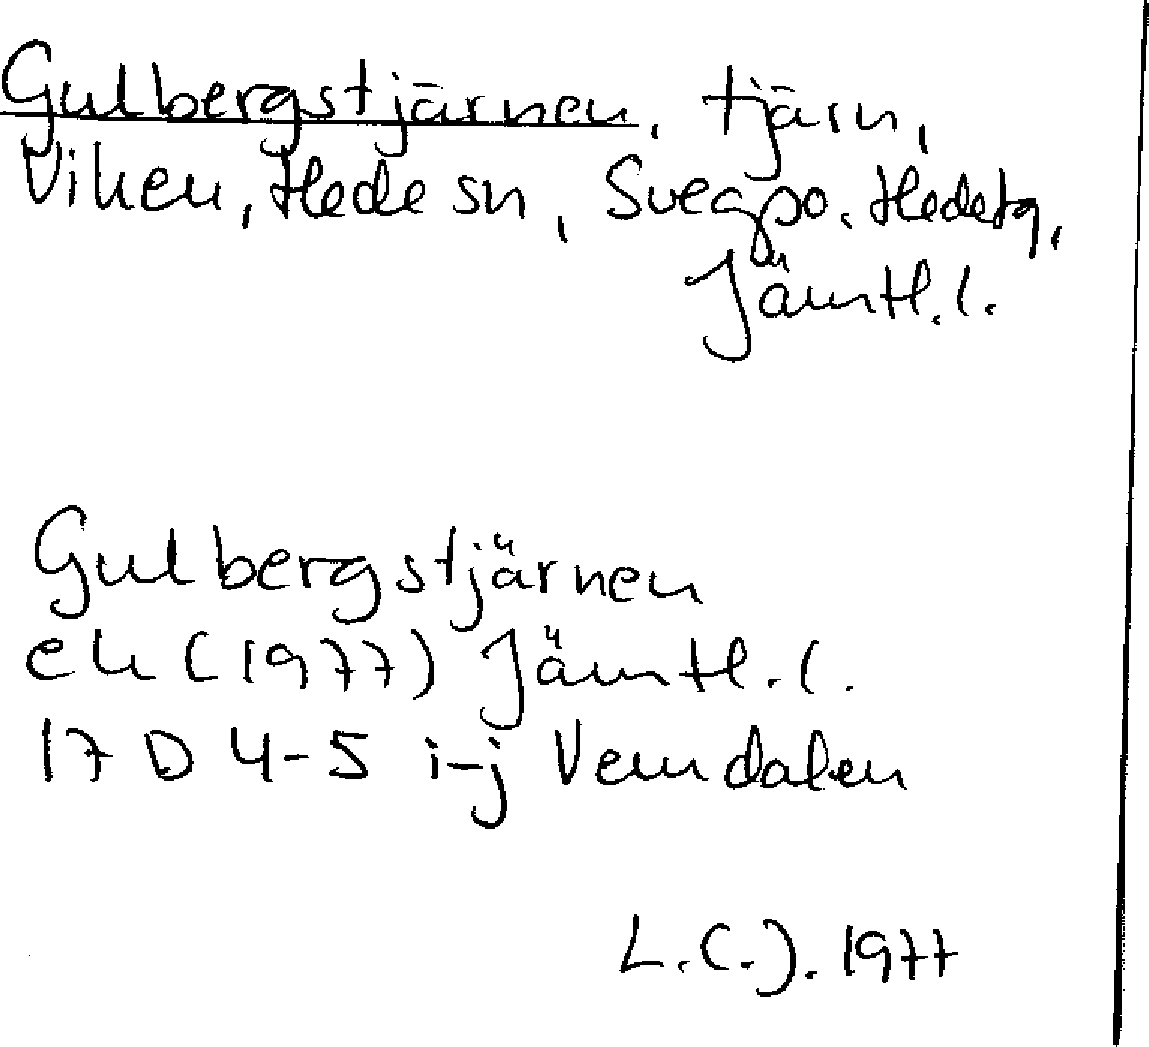 Gulbergstjärnen, tjärn,
Viken, Hede sn, Svegpo. Hedetg,
Jämtl.l.
Gulbergstjärnen
ek (1977) Jämtl.l.
17 D 4-5 i-j Vemdalen
L.C.J. 1977